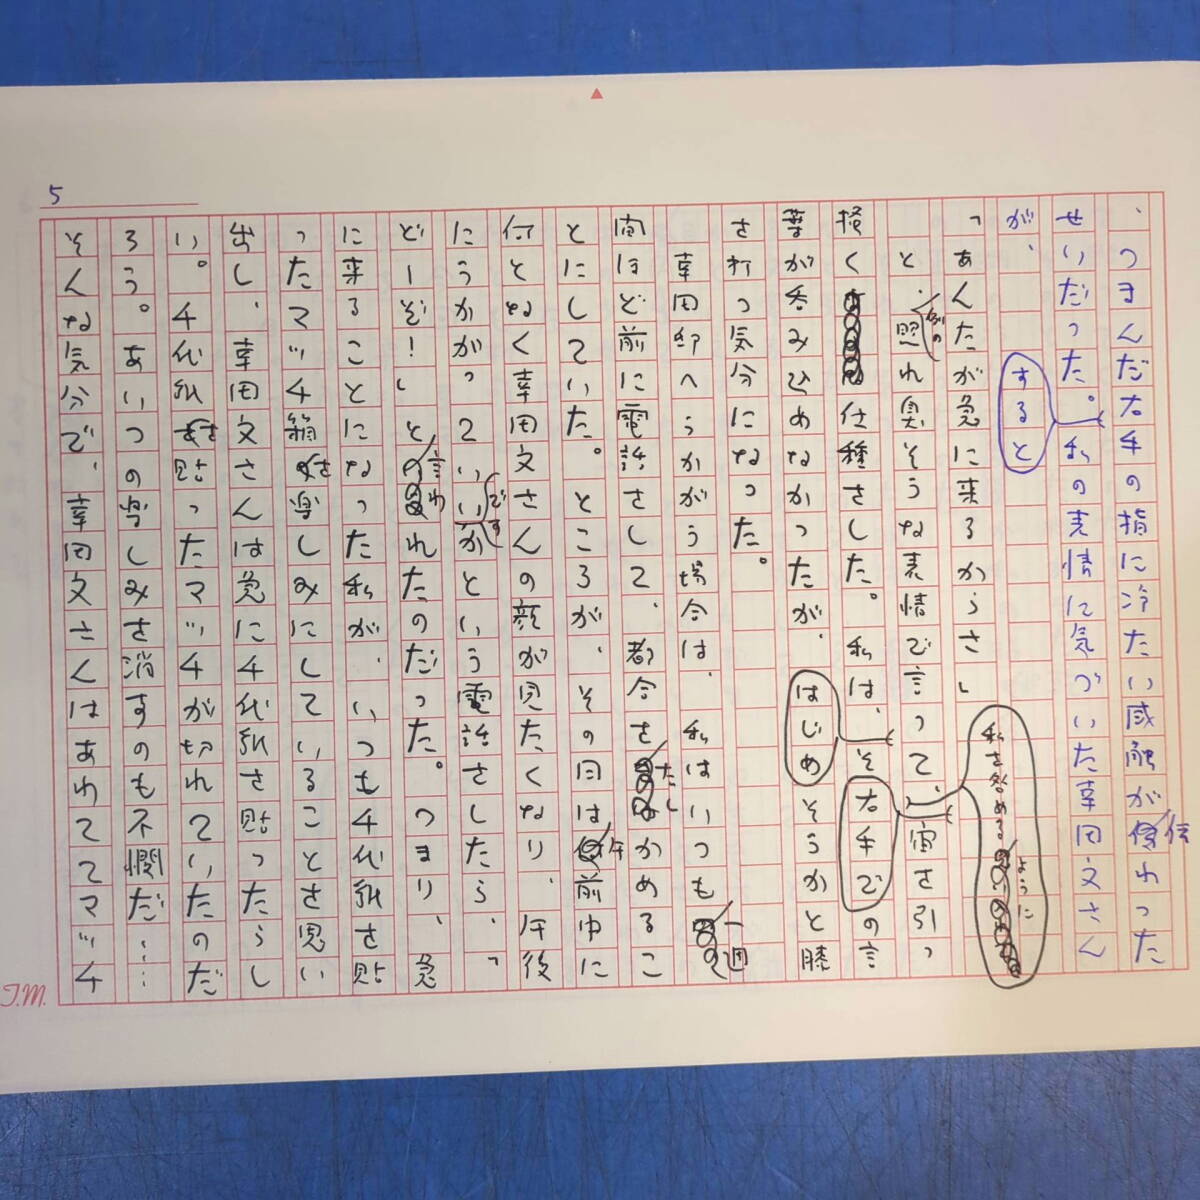 5
、つまんだ右手の指に冷たい感触が伝わった
せいだった。私の表情に気づいた幸田文さん
が、すると
「あんたが急に来るからさ」
と、例の照れ臭そうな表情で言って、私を咎めるように宙を引っ
掻く仕種をした。私は、右手でその言
葉が呑みこめなかったが、はじめそうかと膝
を打つ気分になった。
幸田邸へうかがう場合は、私はいつも一週
間ほど前に電話をして、都合をたしかめるこ
とにしていた。ところが、その日は午前中に
何となく幸田文さんの顔が見たくなり、午後
にうかがっていいですかという電話をしたら、「
どーぞ!」と言われたのだった。つまり、急
に来ることになった私が、いつも千代紙を貼
ったマッチ箱を楽しみにしていることを思い
出し、幸田文さんは急に千代紙を貼ったらし
い。千代紙を貼ったマッチが切れていたのだ
ろう。あいつの楽しみを消すのも不憫だ……
そんな気分で、幸田文さんはあわててマッチ
T.M.